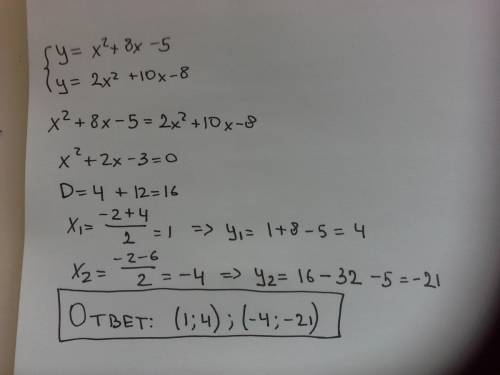 y = x² + 8x - 5
y = 2x² + 10x - 8
x² + 8x - 5 = 2x² + 10x - 8
x² + 2x - 3 = 0
D = 4 + 12 = 16
x₁ = (-2 + 4)/2 = 1 => y₁ = 1 + 8 - 5 = 4
x₂ = (-2 - 6)/2 = -4 => y₂ = 16 - 32 - 5 = -21
Ответ: (1; 4) ; (-4; -21)